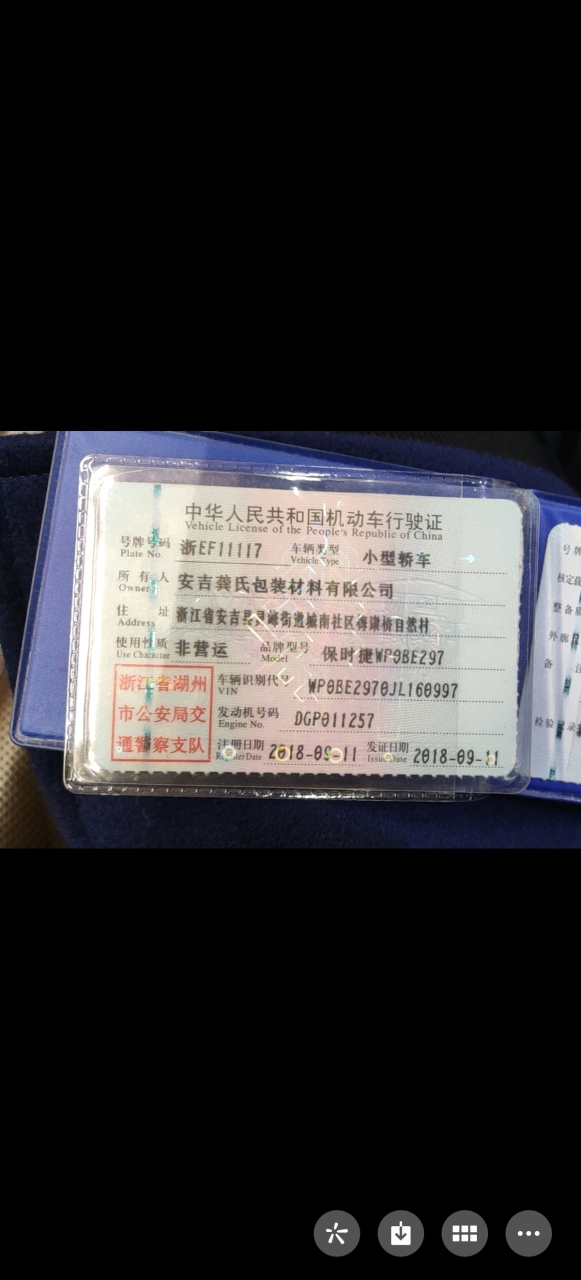 中华人民共和国机动车行驶证
Vehicle License of the People's Republic of China
号牌号码 浙EF11117 车辆类型 小型轿车
Plate No. Vehicle Type
所有人 安吉龚氏包装材料有限公司
Owner
住址 浙江省安吉县 街道城南社区 自然村
Address
使用性质 非营运 品牌型号 保时捷WP0BE297
Use Character Model
浙江省湖州
市公安局交
通警察支队
车辆识别代号 WP0BE2970JL160997
VIN
发动机号码 DGP011257
Engine No.
注册日期 2018-09-11 发证日期 2018-09-11
Register Date Issue Date
号牌
核定载
整备质
外廓
备 注
检验记录